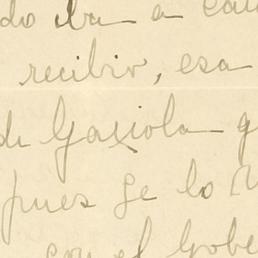 do iba a
recibir, esa
de Gaxiola
pues se lo
con el Gobe